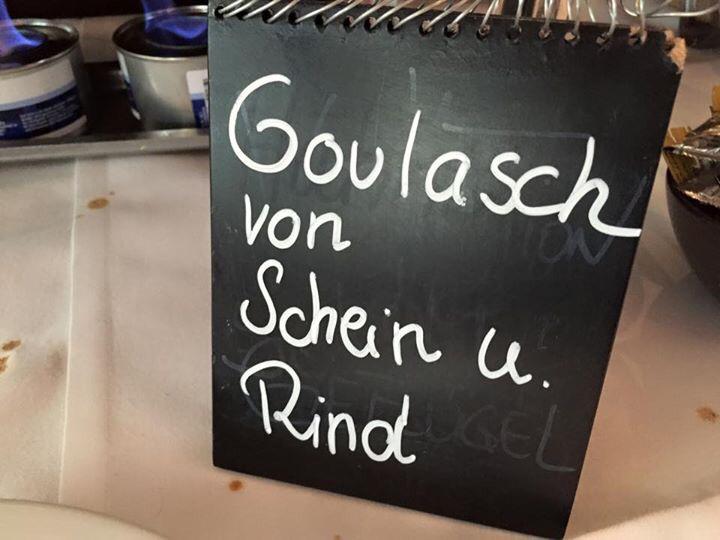 Goulasch
von
Schein u.
Rind